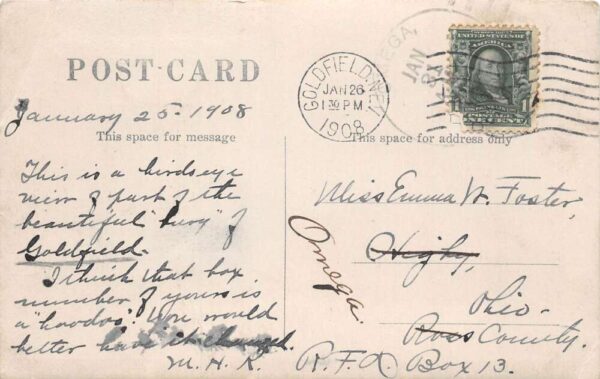 POST-CARD
January 25-1908
This space for message
This is a birdseye
view of part of the
beautiful "burg" of
Goldfield-
I think that box
number of yours is
a "hoodoo". You would
better have it changed.
M. H. K.
GOLDFIELD, NEV.
JAN 26
1 30 PM
1908
OMEGA,
JAN
SERIES 1902
UNITED STATES OF
AMERICA
1
POSTAGE
ONE CENT
This space for address only
Miss Emma W. Foster,
Higby,
Omega
Ohio.
Ross County.
R.F.D. Box 13.